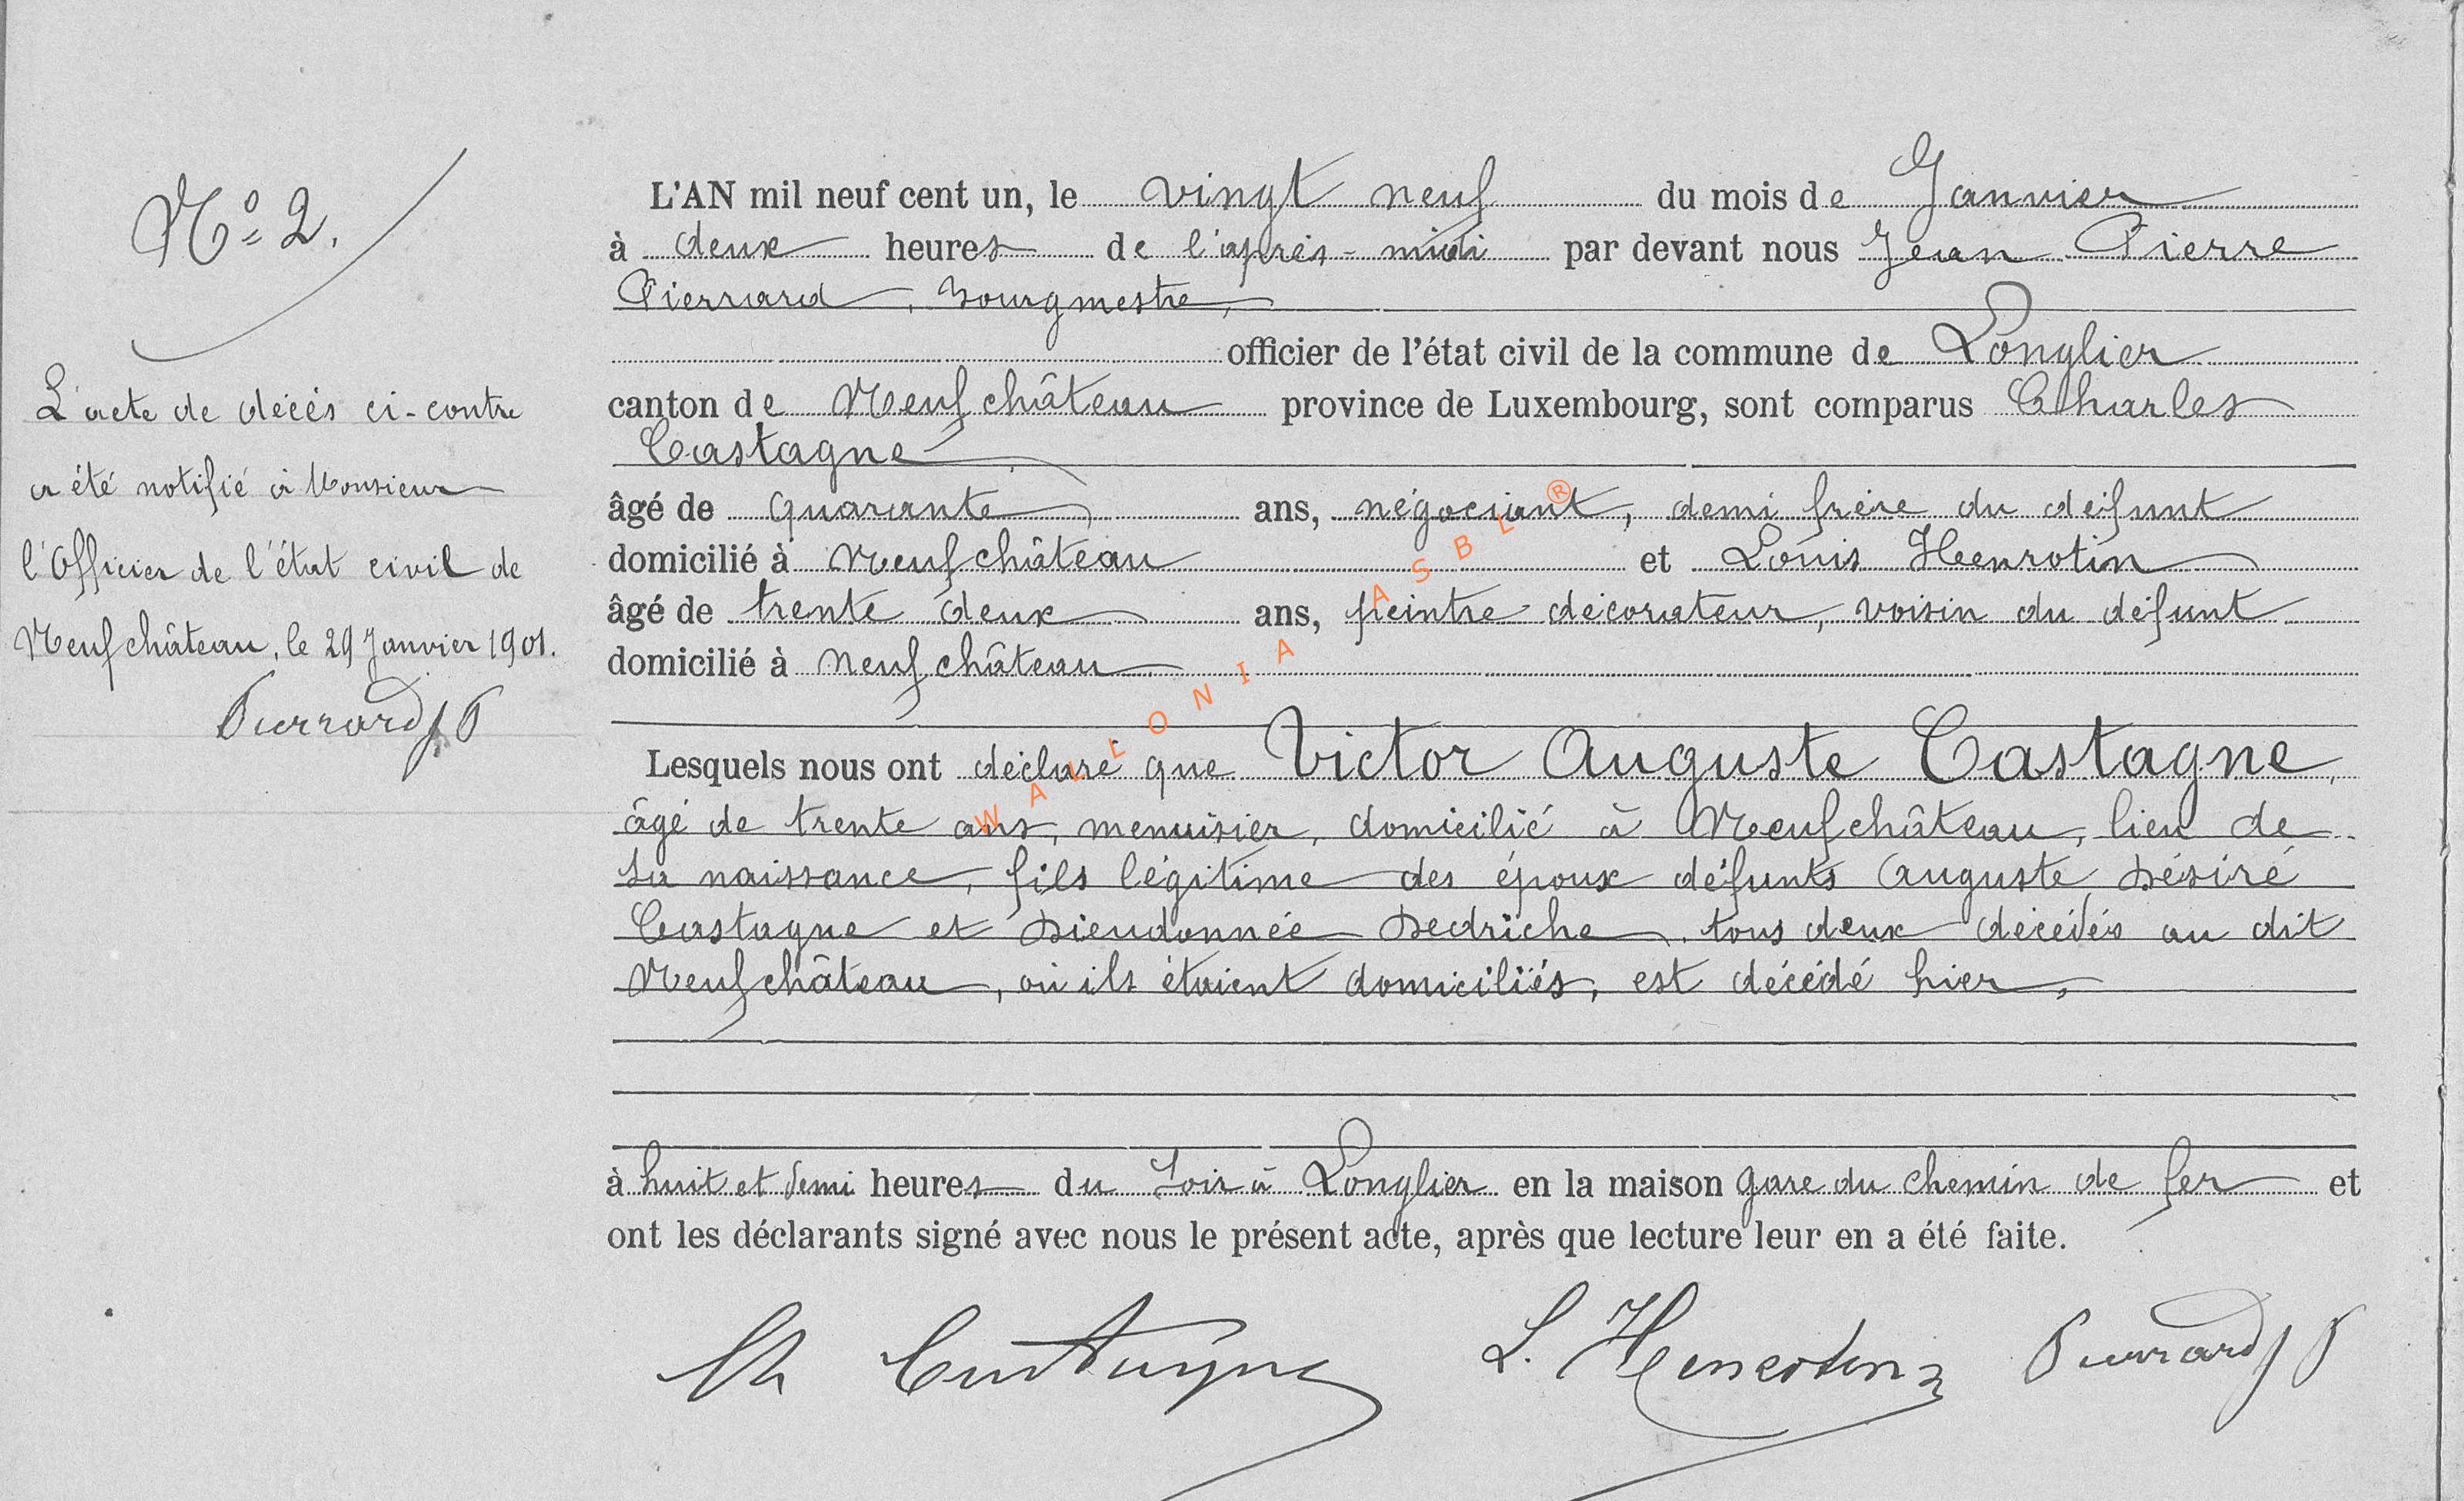 N° 2.
L'acte de décès ci-contre
a été notifié à Monsieur
l'Officier de l'état civil de
Neufchâteau, le 29 Janvier 1901.
Pierrard JP
L'AN mil neuf cent un, le vingt neuf du mois de Janvier
à deux heures de l'après-midi par devant nous Jean Pierre
Pierrard, bourgmestre,
officier de l'état civil de la commune de Longlier
canton de Neufchâteau province de Luxembourg, sont comparus Charles
Castagne
âgé de quarante ans, négociant, demi frère du défunt
domicilié à Neufchâteau et Louis Henrotin
âgé de trente deux ans, peintre décorateur, voisin du défunt
domicilié à Neufchâteau
Lesquels nous ont déclaré que Victor Auguste Castagne,
âgé de trente ans, menuisier, domicilié à Neufchâteau, lieu de
sa naissance, fils légitime des époux défunts Auguste Désiré
Castagne et Dieudonnée Dedriche, tous deux décédés au dit
Neufchâteau, où ils étaient domiciliés, est décédé hier,
à huit et demi heures du soir à Longlier en la maison gare du chemin de fer et
ont les déclarants signé avec nous le présent acte, après que lecture leur en a été faite.
Ch Castagne L. Henrotin Pierrard JP
WALLONIA ASBL ®